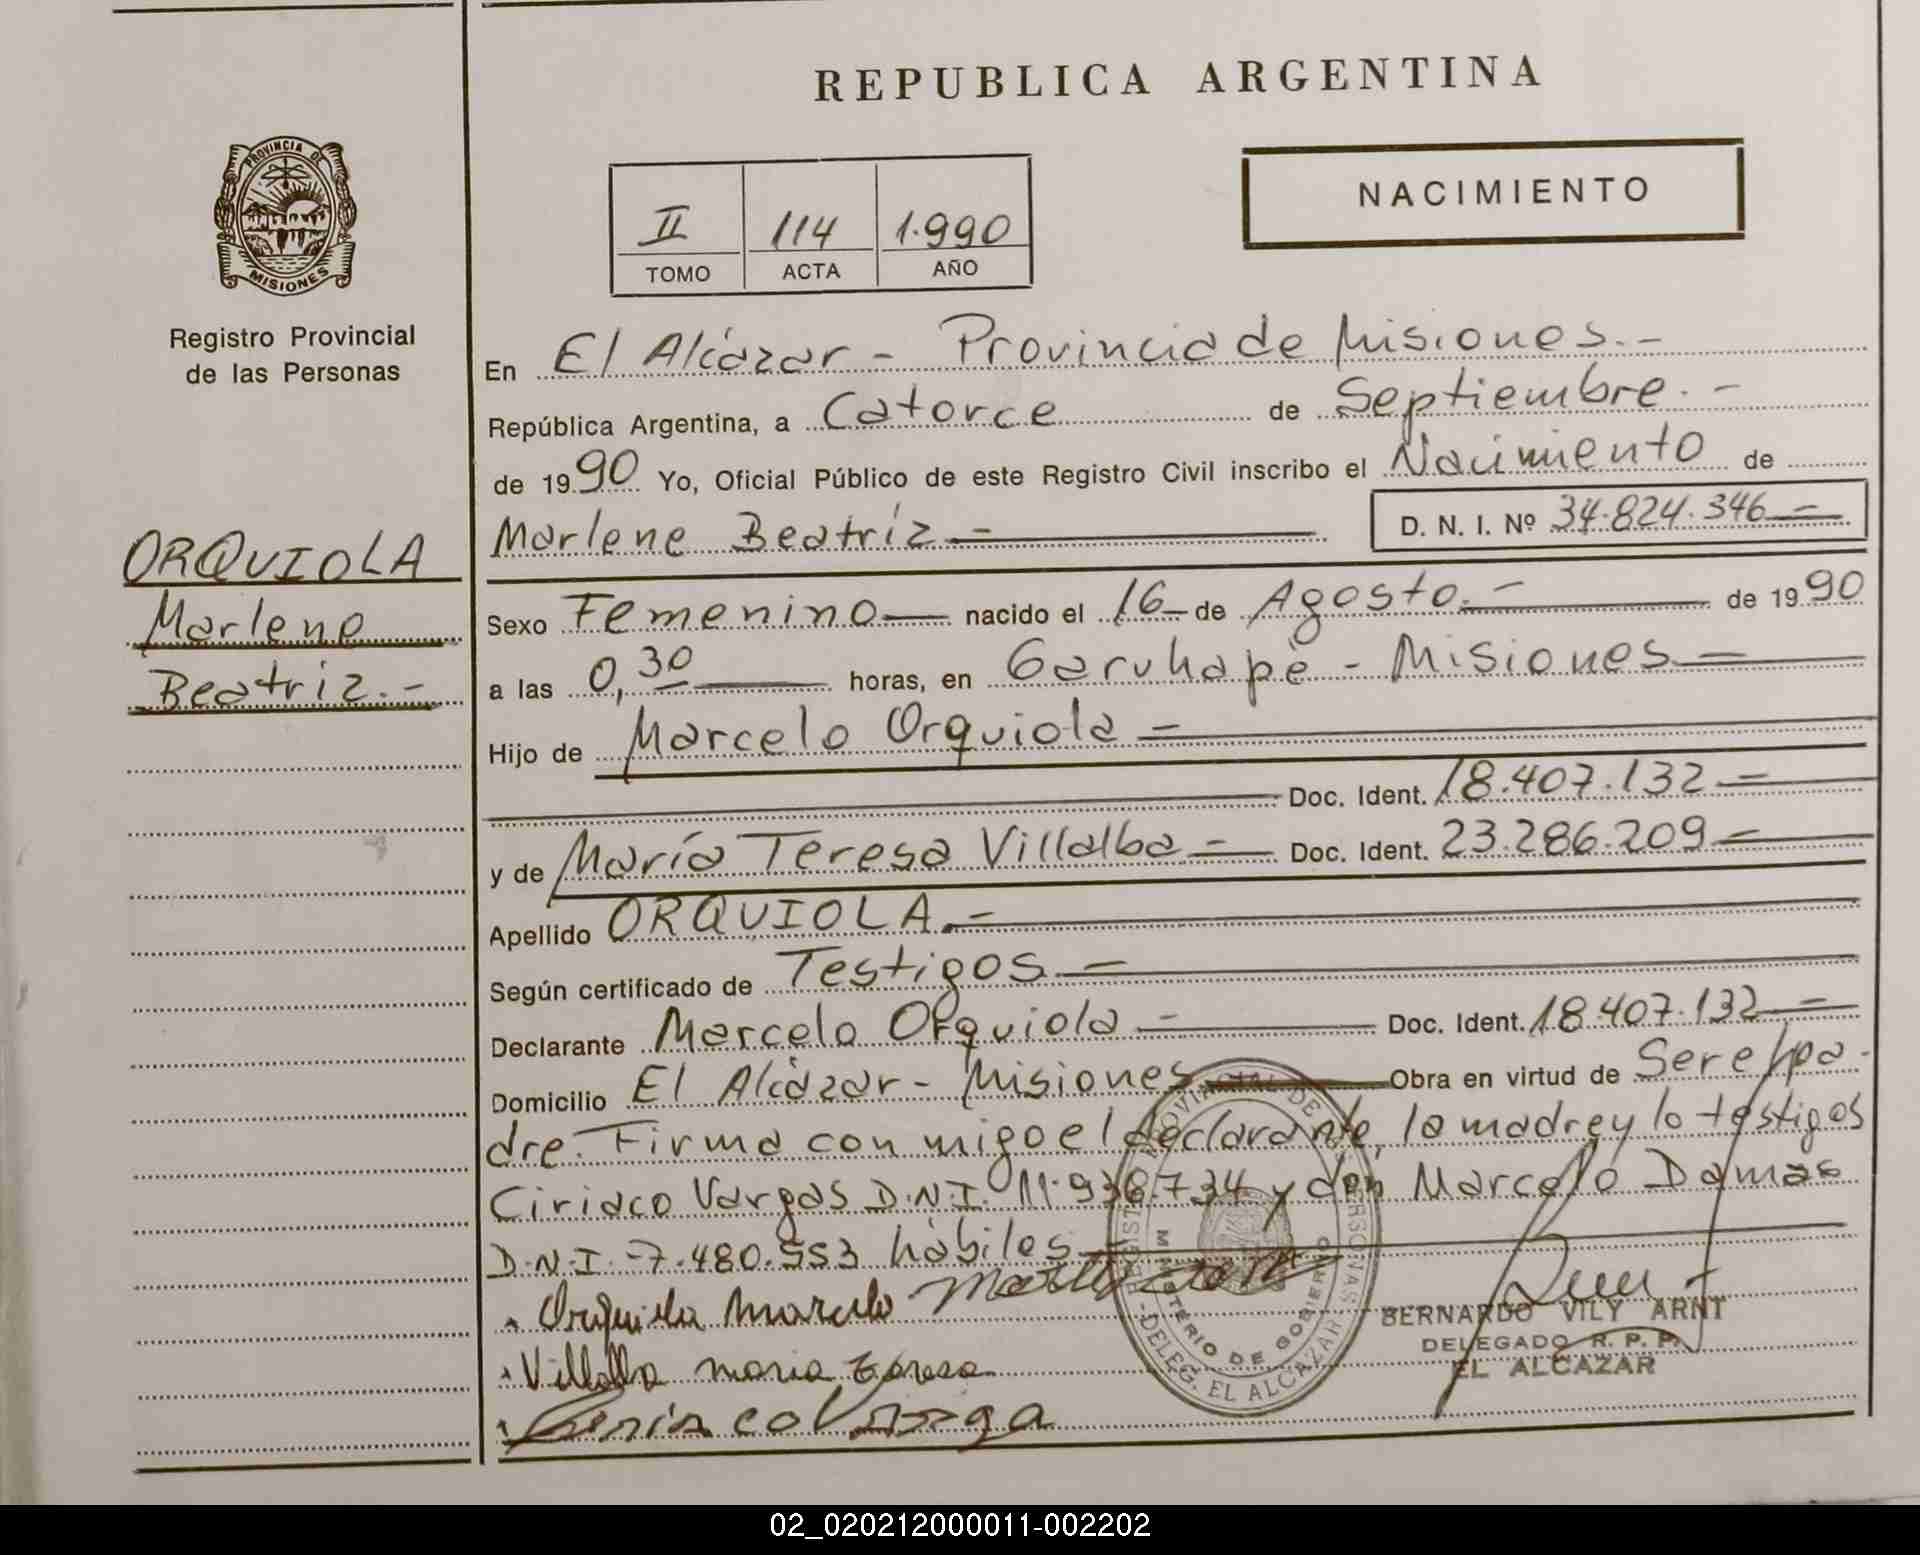 REPUBLICA ARGENTINA
NACIMIENTO
II 114 1.990
TOMO ACTA AÑO
PROVINCIA DE
MISIONES
Registro Provincial
de las Personas
ORQUIOLA
Marlene
Beatriz.-
En El Alcázar - Provincia de Misiones.-
República Argentina, a Catorce de Septiembre.-
de 1990 Yo, Oficial Público de este Registro Civil inscribo el Nacimiento de
Marlene Beatríz - D. N. I. Nº 34.824.346-
Sexo Femenino - nacido el 16 - de Agosto.- de 1990
a las 0,30 horas, en Garuhapè - Misiones -
Hijo de Marcelo Orquiola -
Doc. Ident. 18.407.132-
y de María Teresa Villalba - Doc. Ident. 23.286.209-
Apellido ORQUIOLA.-
Según certificado de Testigos -
Declarante Marcelo Orquiola - Doc. Ident. 18.407.132-
Domicilio El Alcàzar - Misiones Obra en virtud de Ser el pa-
dre. Firma con migo el declarante, la madre y lo testigos
Ciriaco Vargas D.N.I. 11.938.734 y don Marcelo Damas
D.N.I. 7.480.553 hàbiles
Orquiola Marcelo
Villalba maria teresa
BERNARDO VILY ARNT
DELEGADO R. P. P.
EL ALCAZAR
MINISTERIO DE GOBIERNO
DELEG. EL ALCAZAR
02_020212000011-002202